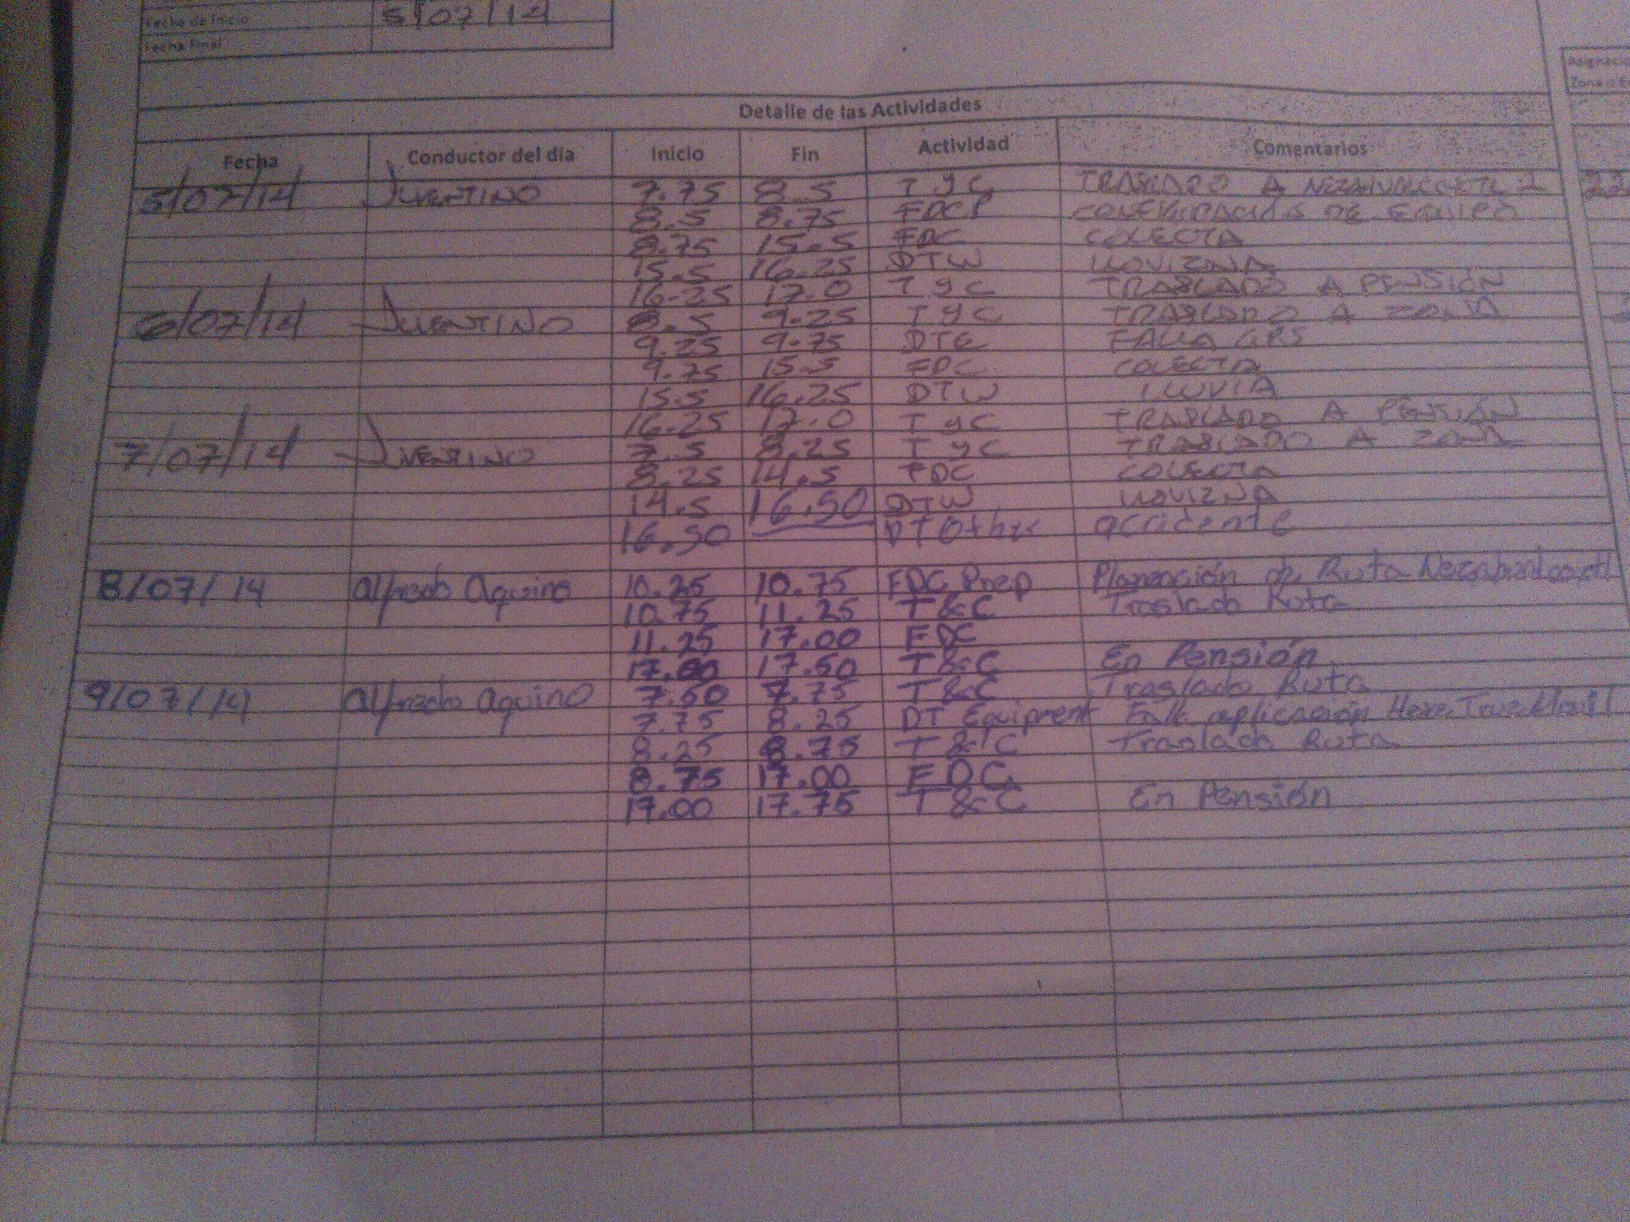 Fecha de Inicio 5/07/14
Fecha Final
Asignació
Zona o E
Detalle de las Actividades
Fecha Conductor del día Inicio Fin Actividad Comentarios
5/07/14 JUVENTINO 7.75 8.5 T y C TRASLADO A NEZAHUALCOYOTL 1 22
8.5 8.75 FDCP CONFIGURACIÓN DE EQUIPO
8.75 15.5 FDC COLECTA
15.5 16.25 DTW LLOVIZNA
16.25 17.0 T y C TRASLADO A PENSIÓN
6/07/14 JUVENTINO 8.5 9.25 T y C TRASLADO A ZONA
9.25 9.75 DTE FALLA GPS
9.75 15.5 FDC COLECTA
15.5 16.25 DTW LLUVIA
16.25 17.0 T y C TRASLADO A PENSIÓN
7/07/14 JUVENTINO 7.5 8.25 T y C TRASLADO A ZONA
8.25 14.5 FDC COLECTA
14.5 16.50 DTW LLOVIZNA
16.50 DT Other accidente
8/07/14 Alfredo Aquino 10.25 10.75 FDC Prep Planeación de Ruta
10.75 11.25 T&C Traslado Ruta
11.25 17.00 FDC
17.00 17.50 T&C En Pensión
9/07/14 Alfredo Aquino 7.50 7.75 T&C Traslado Ruta
7.75 8.25 DT Equipment Falla aplicación Here True
8.25 8.75 T&C Traslado Ruta
8.75 17.00 FDC
17.00 17.75 T&C En Pensión